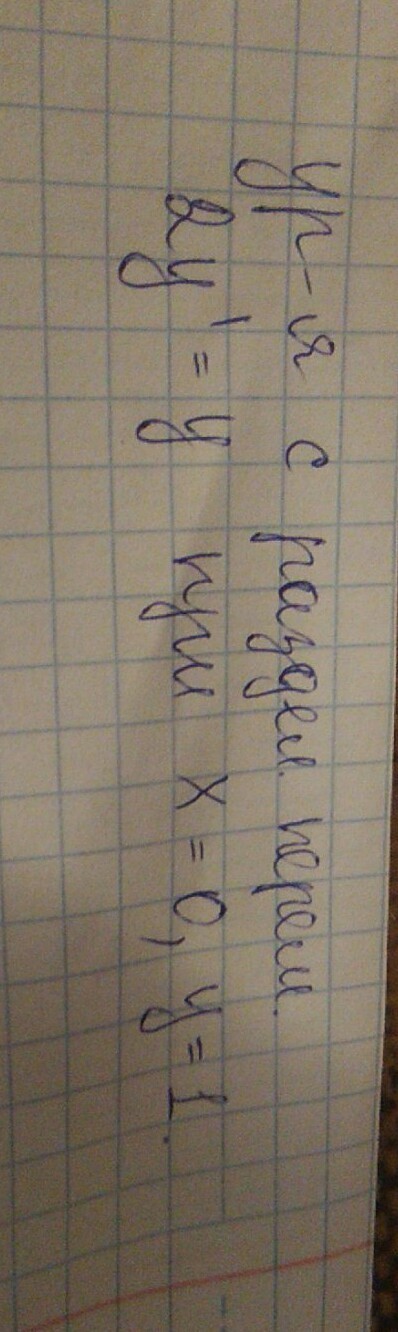 Ур-я с раздел. перем.
2y' = y при x = 0, y = 1.